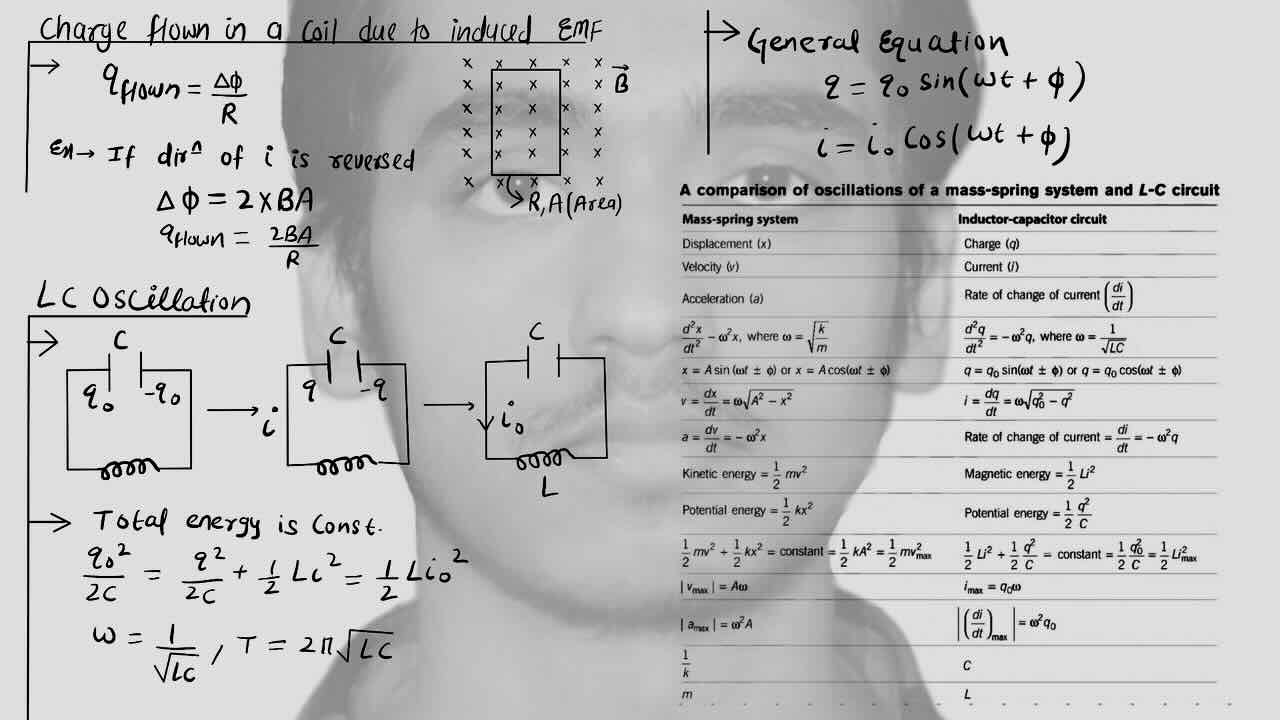 Charge flown in a coil due to induced EMF
→ q_flown = Δϕ/R
x x x x x
x x x x x B⃗
x x x x x
x x x x x
x x x x x
x x x x x
R, A (Area)
Ex→ If dirⁿ of i is reversed
Δϕ = 2×BA
q_flown = 2BA/R
LC Oscillation
→ C C C
q₀ -q₀ → i q -q → i₀
L
→ Total energy is Const.
q₀²/2C = q²/2C + 1/2 Li² = 1/2 Li₀²
ω = 1/√LC , T = 2π√LC
→ General Equation
q = q₀ sin(ωt + ϕ)
i = i₀ cos(ωt + ϕ)
A comparison of oscillations of a mass-spring system and L-C circuit
Mass-spring system Inductor-capacitor circuit
Displacement (x) Charge (q)
Velocity (v) Current (i)
Acceleration (a) Rate of change of current (di/dt)
d²x/dt² - ω²x, where ω = √(k/m) d²q/dt² = -ω²q, where ω = 1/√LC
x = A sin (ωt ± ϕ) or x = A cos(ωt ± ϕ) q = q₀ sin(ωt ± ϕ) or q = q₀ cos(ωt ± ϕ)
v = dx/dt = ω√(A² - x²) i = dq/dt = ω√(q₀² - q²)
a = dv/dt = - ω²x Rate of change of current = di/dt = - ω²q
Kinetic energy = 1/2 mv² Magnetic energy = 1/2 Li²
Potential energy = 1/2 kx² Potential energy = 1/2 q²/C
1/2 mv² + 1/2 kx² = constant = 1/2 kA² = 1/2 mv²max 1/2 Li² + 1/2 q²/C = constant = 1/2 q₀²/C = 1/2 Li²max
| vmax | = Aω imax = q₀ω
| amax | = ω²A |(di/dt)max| = ω²q₀
1/k C
m L